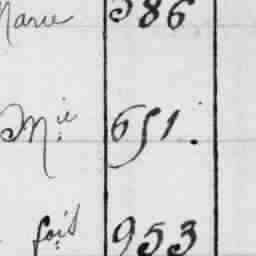 Marie 586
Mie 651.
fois 953